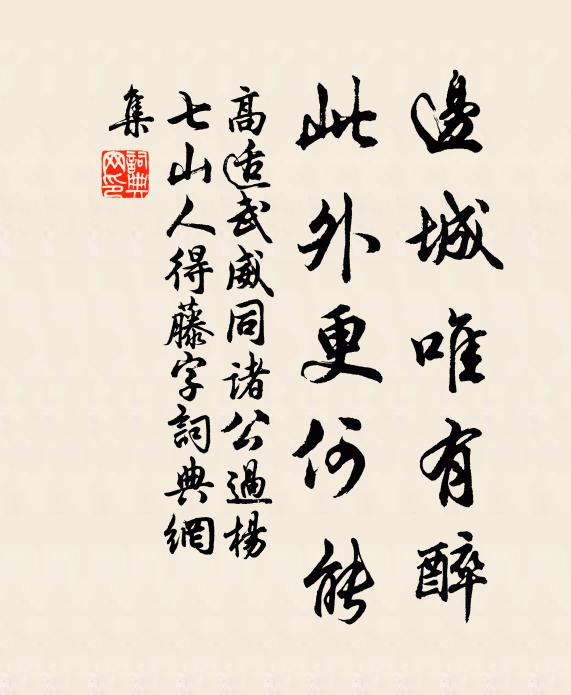 邊城唯有醉
此外更何能
高适武威同諸公過楊
七山人得藤字詞典網
集
詞典
网印